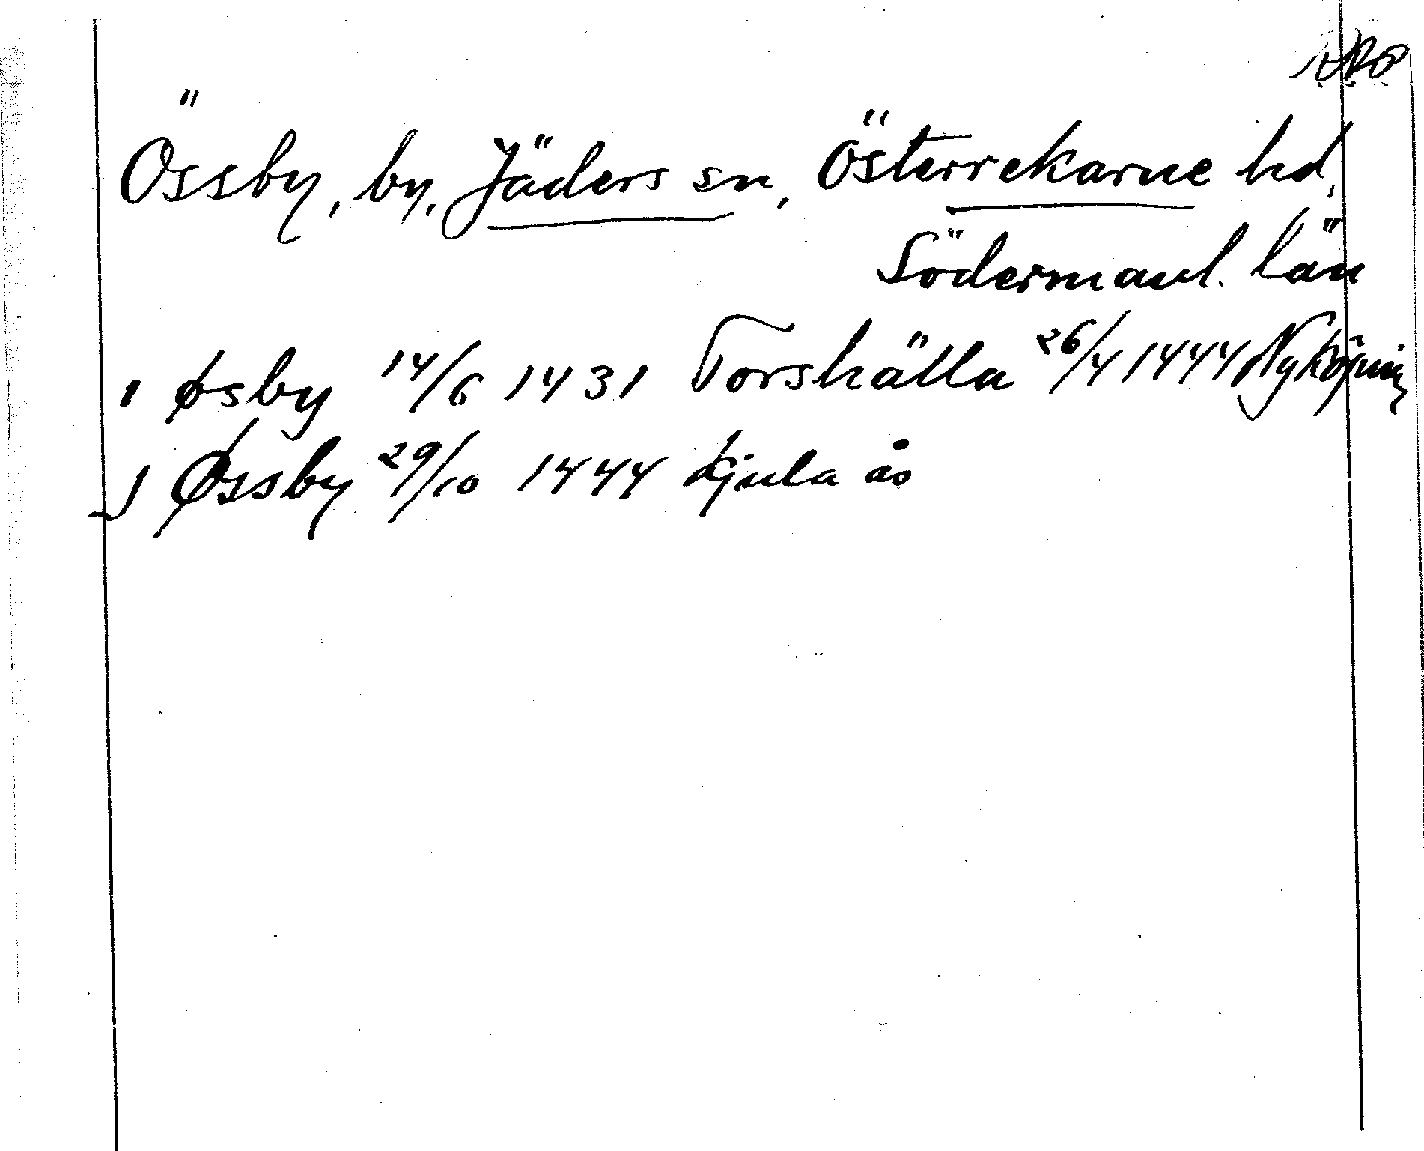 Össby, by, Jäders sn, Österrekarne hd,
Södermanl. län
i Øsby 14/6 1431 Torshälla 26/4 1444 Nyköping
J Øssby 29/10 1444 Kjula ås